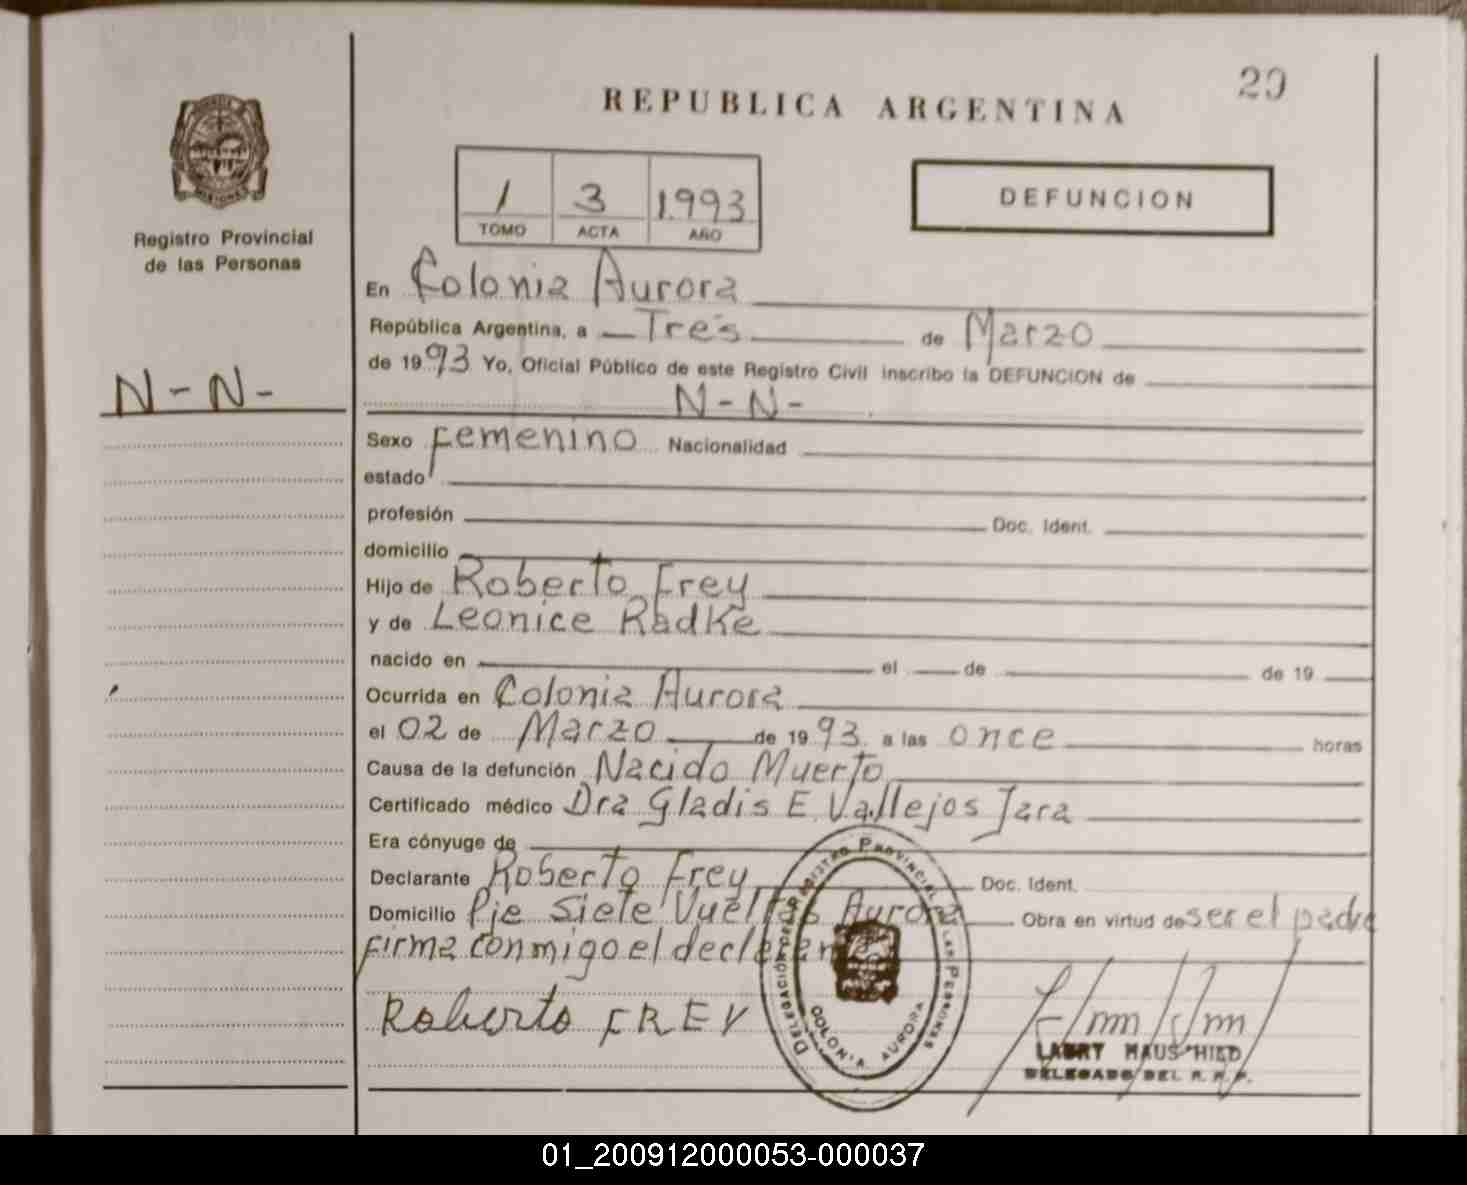 29
REPUBLICA ARGENTINA
1 3 1.993
TOMO ACTA AÑO
DEFUNCION
MISIONES
Registro Provincial
de las Personas
N - N -
En Colonia Aurora
República Argentina, a Tres de Marzo
de 1993 Yo, Oficial Público de este Registro Civil inscribo la DEFUNCION de
N - N -
Sexo Femenino Nacionalidad
estado
profesión Doc. Ident.
domicilio
Hijo de Roberto Frey
y de Leonice Radke
nacido en el de de 19
Ocurrida en Colonia Aurora
el 02 de Marzo de 1993 a las once horas
Causa de la defunción Nacido Muerto
Certificado médico Dra Gladis E. Vallejos Jara
Era cónyuge de
Declarante Roberto Frey Doc. Ident.
Domicilio Pje Siete Vueltas Aurora Obra en virtud de ser el padre
firma conmigo el
Roberto FREY
DELEGACIÓN DEL REGISTRO PROVINCIAL DE LAS PERSONAS
COLONIA AURORA
DELEGADO DEL R. P. P.
01_200912000053-000037